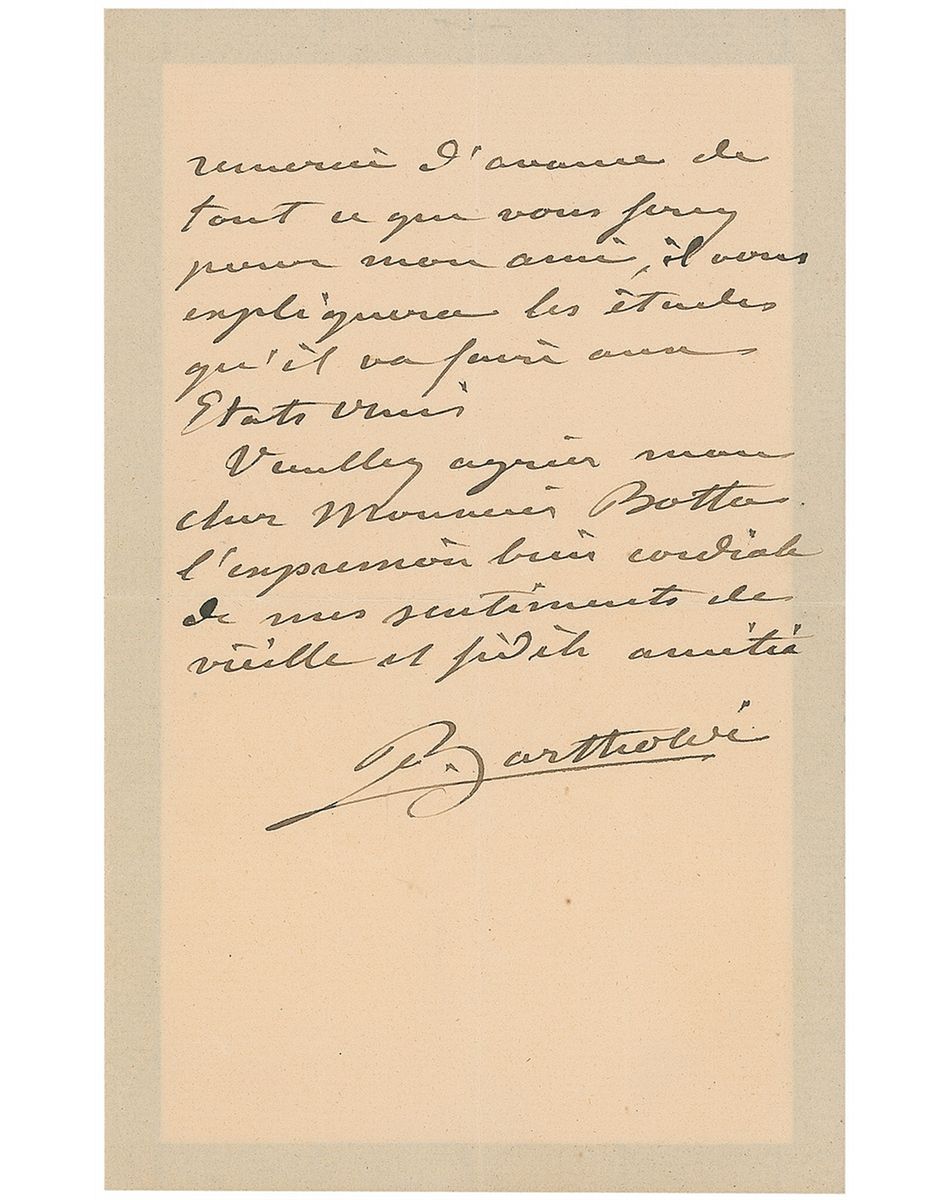 remercie d'avance de
tout ce que vous ferez
pour mon ami, il vous
expliquera les études
qu'il va faire aux
Etats Unis
Veuillez agréer mon
cher Monsieur Botta
l'expression bien cordiale
de mes sentiments de
vieille et fidèle amitié
Bartholdi